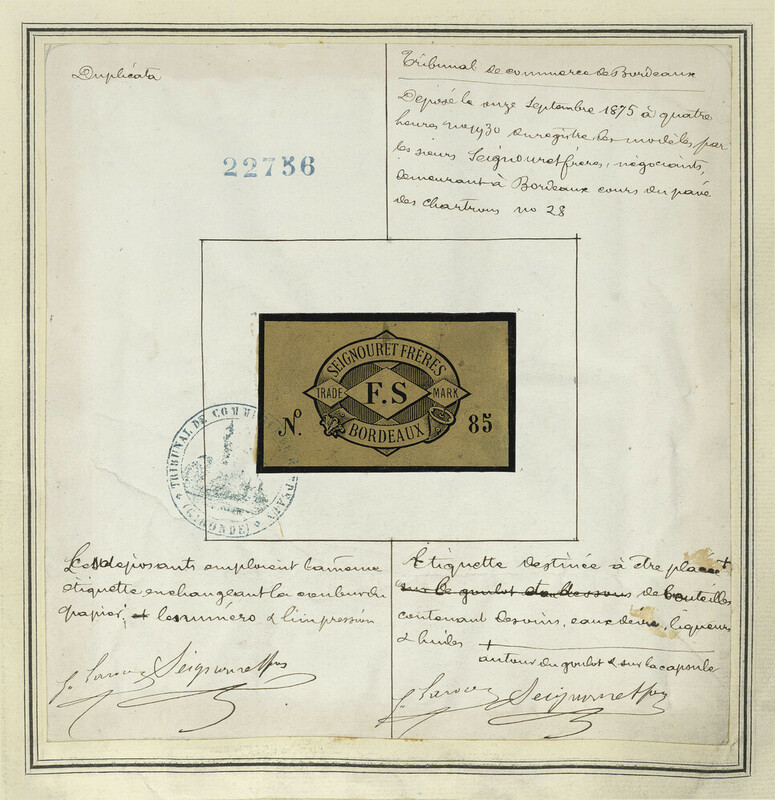 Duplicata
22756
Tribunal de commerce de Bordeaux
Déposé le onze Septembre 1875 à quatre
heures no 1930 du registre des modèles par
les sieurs Seignouret frères, négociants,
demeurant à Bordeaux cours du pavé
des chartrons no 28
SEIGNOURET FRÈRES
TRADE F.S MARK
BORDEAUX
No. 85
TRIBUNAL DE COMM
(GIRONDE)
déposants emploient la même
étiquette en changeant la couleur du
papier, le numéro & l'impression
Seignouret frs
Etiquette destinée à être placée +
sur le goulot de bouteilles
contenant des vins, eaux de vie, liqueurs
& huiles
+ autour du goulot & sur la capsule
Seignouret frs